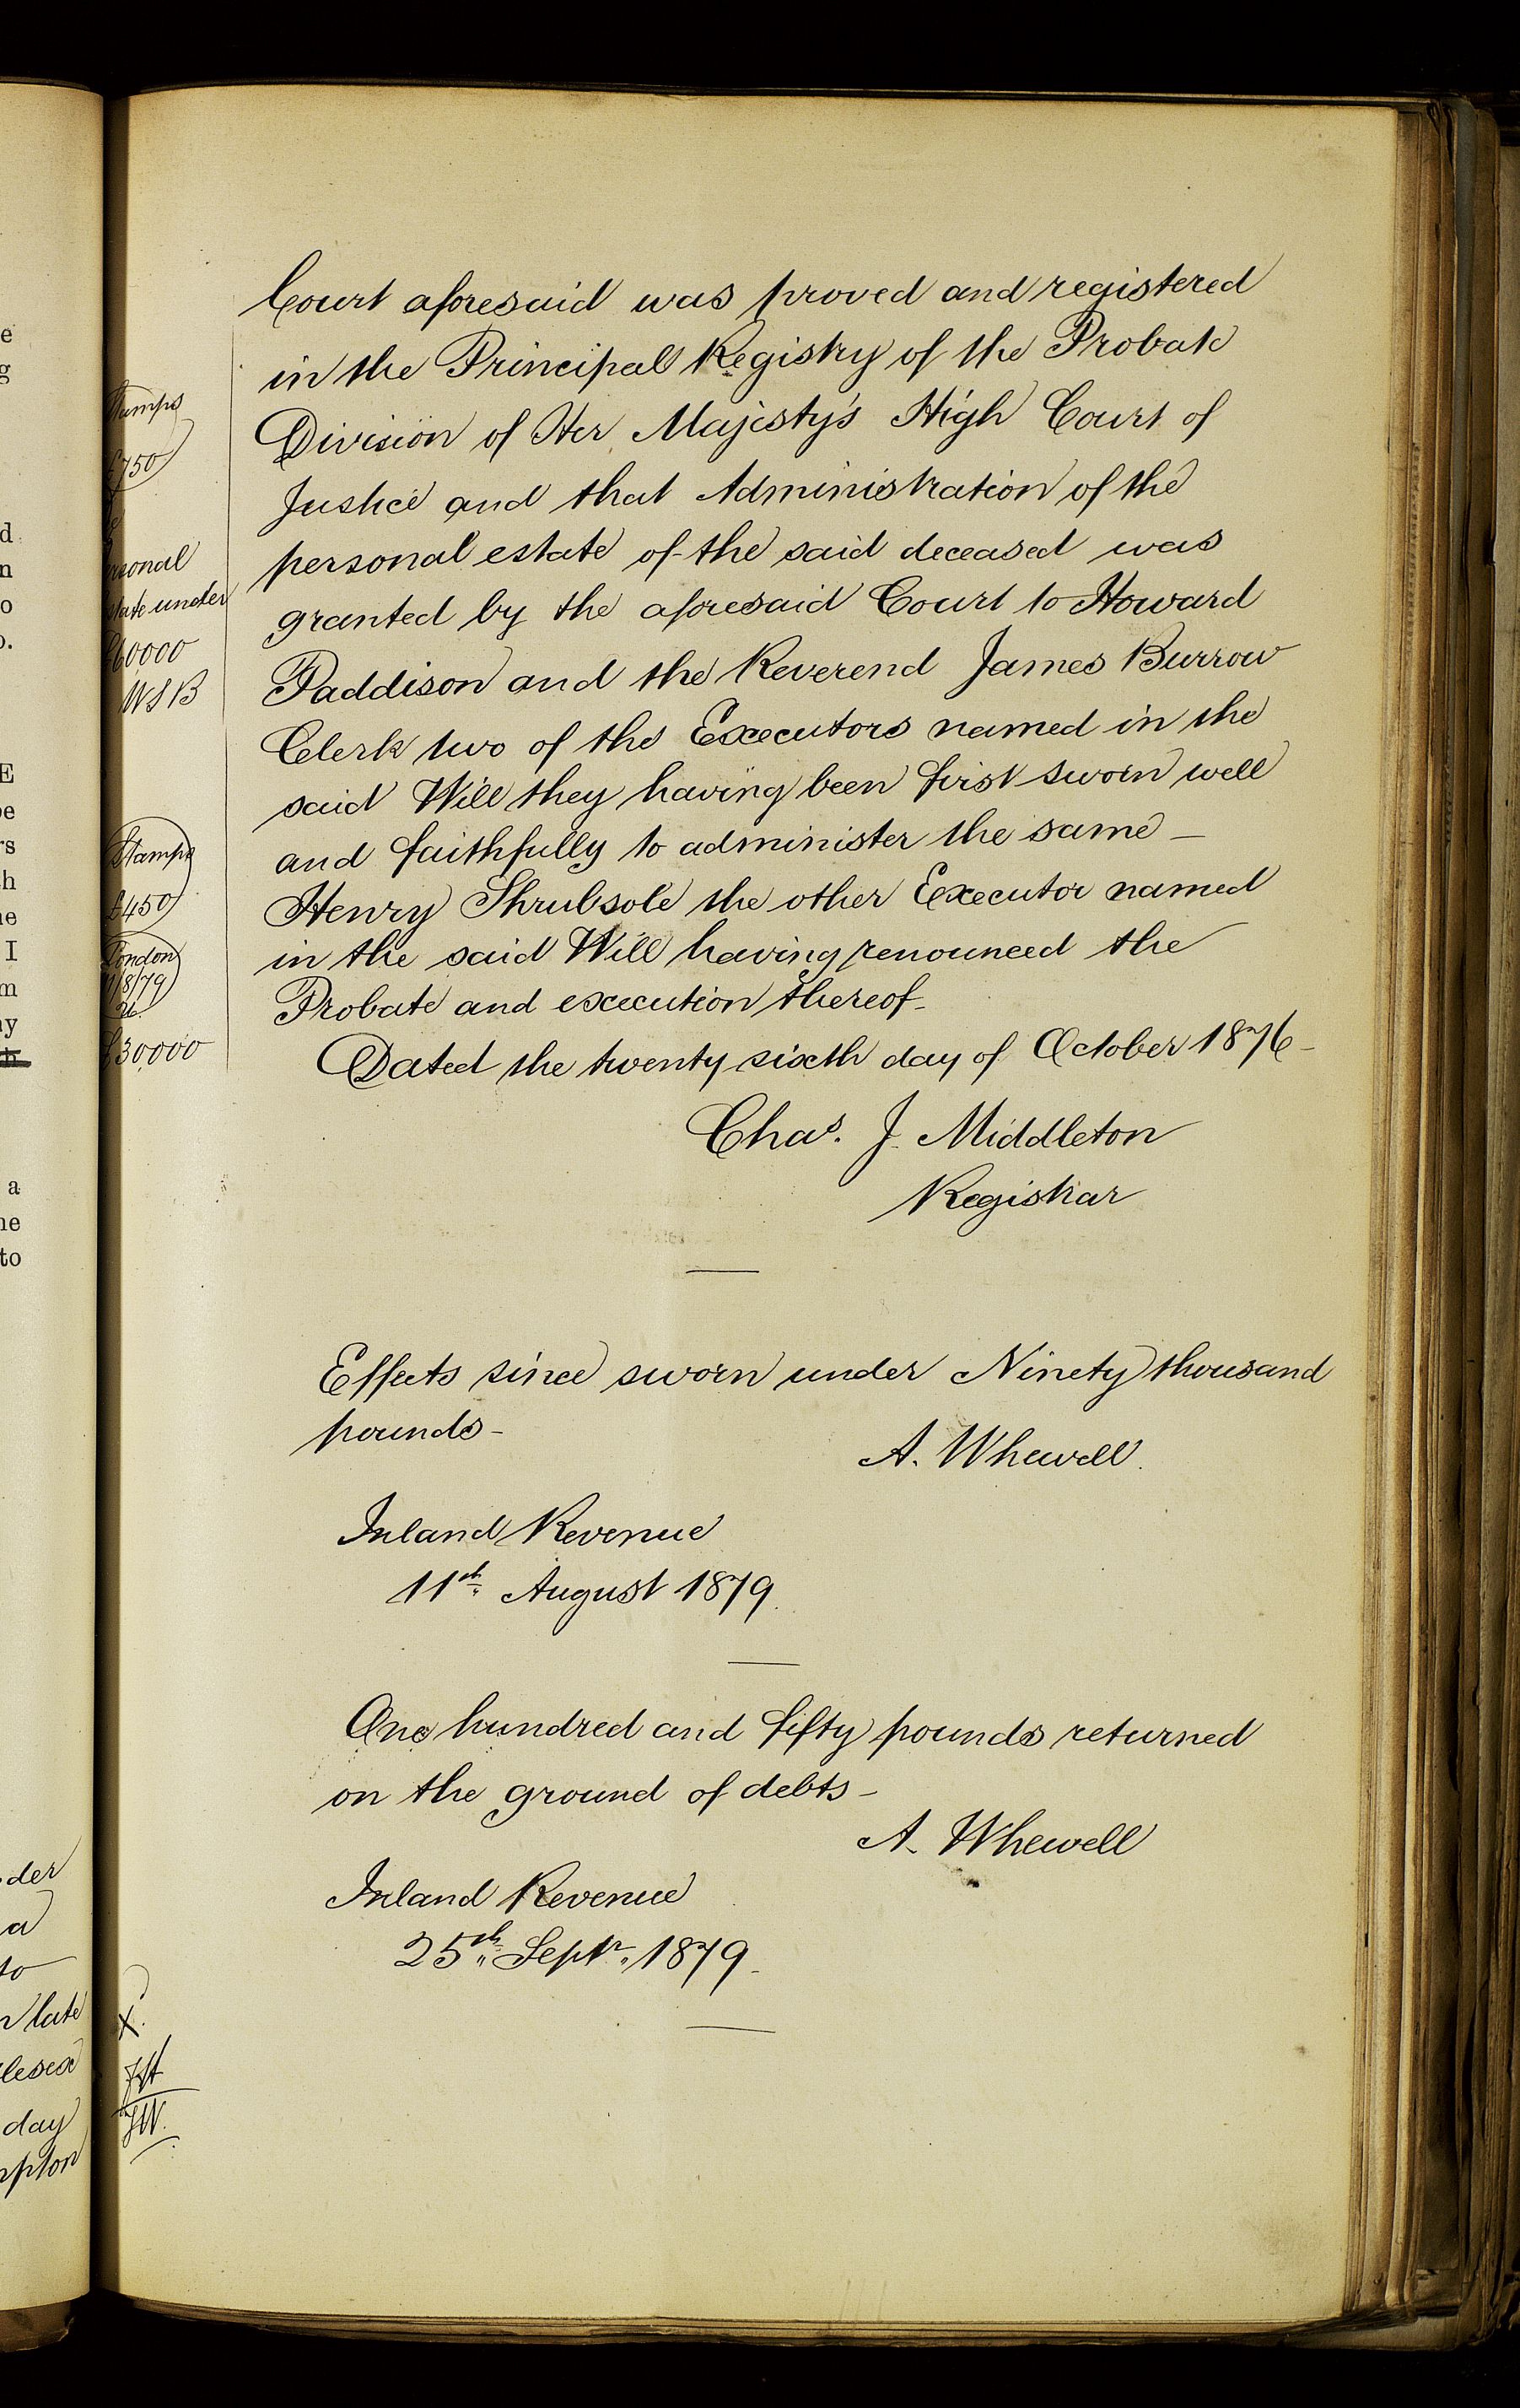 Court aforesaid was proved and registered
in the Principal Registry of the Probate
Division of Her Majesty's High Court of
Justice and that Administration of the
personal estate of the said deceased was
granted by the aforesaid Court to Howard
Paddison and the Reverend James Burrow
Clerk two of the Executors named in the
said Will they having been first sworn well
and faithfully to administer the same –
Henry Shrubsole the other Executor named
in the said Will having renounced the
Probate and execution thereof –
Dated the twenty sixth day of October 1876 –
Chas. J. Middleton
Registrar
Effects since sworn under Ninety thousand
pounds –
A. Whewell.
Inland Revenue
11th August 1879.
One hundred and fifty pounds returned
on the ground of debts –
A. Whewell
Inland Revenue
25th Septr. 1879.
Stamps
£750
under
£60000
WSB
Stamps
£450
London
/8/79
£30,000
X.
JW.
e
g
d
n
o
o.
E
be
rs
th
ne
I
m
ny
a
ne
to
der
a
to
late
lesex
day
pton